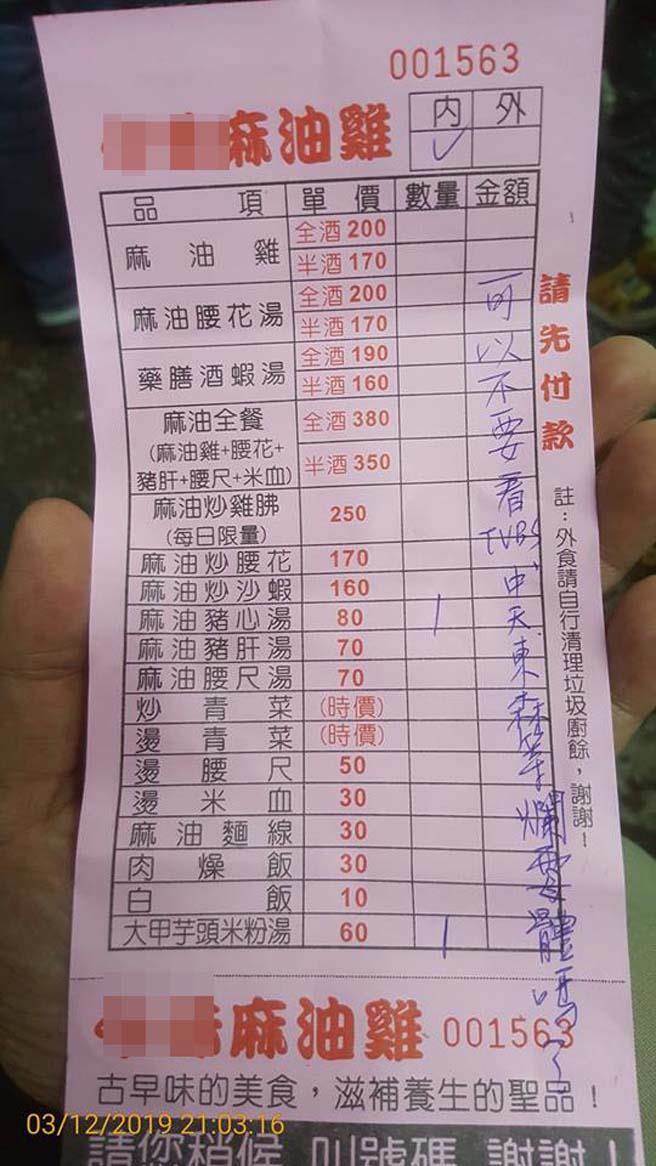 001563
麻油雞
內 外
✓
品項 單價 數量 金額
麻油雞 全酒 200
半酒 170
麻油腰花湯 全酒 200
半酒 170
藥膳酒蝦湯 全酒 190
半酒 160
麻油全餐 全酒 380
(麻油雞+腰花+
豬肝+腰尺+米血) 半酒 350
麻油炒雞胇 250
(每日限量)
麻油炒腰花 170
麻油炒沙蝦 160
麻油豬心湯 80 1
麻油豬肝湯 70
麻油腰尺湯 70
炒青菜 (時價)
燙青菜 (時價)
燙腰尺 50
燙米血 30
麻油麵線 30
肉燥飯 30
白飯 10
大甲芋頭米粉湯 60 1
可以不要看TVBS、中天東森等爛媒體嗎?
請先付款
註:外食請自行清理垃圾廚餘,謝謝!
麻油雞 001563
古早味的美食,滋補養生的聖品!
請你稍候 叫號碼 謝謝!
03/12/2019 21:03:16